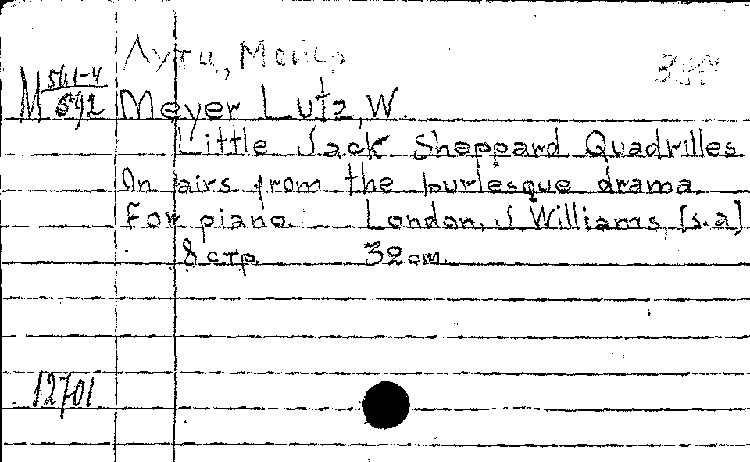 М 561-4
592
Meyer Lutz, W.
Little Jack Sheppard Quadrilles
On airs from the burlesque drama.
For piano. London, J Williams, [s.a]
8 стр. 32 см.
12701